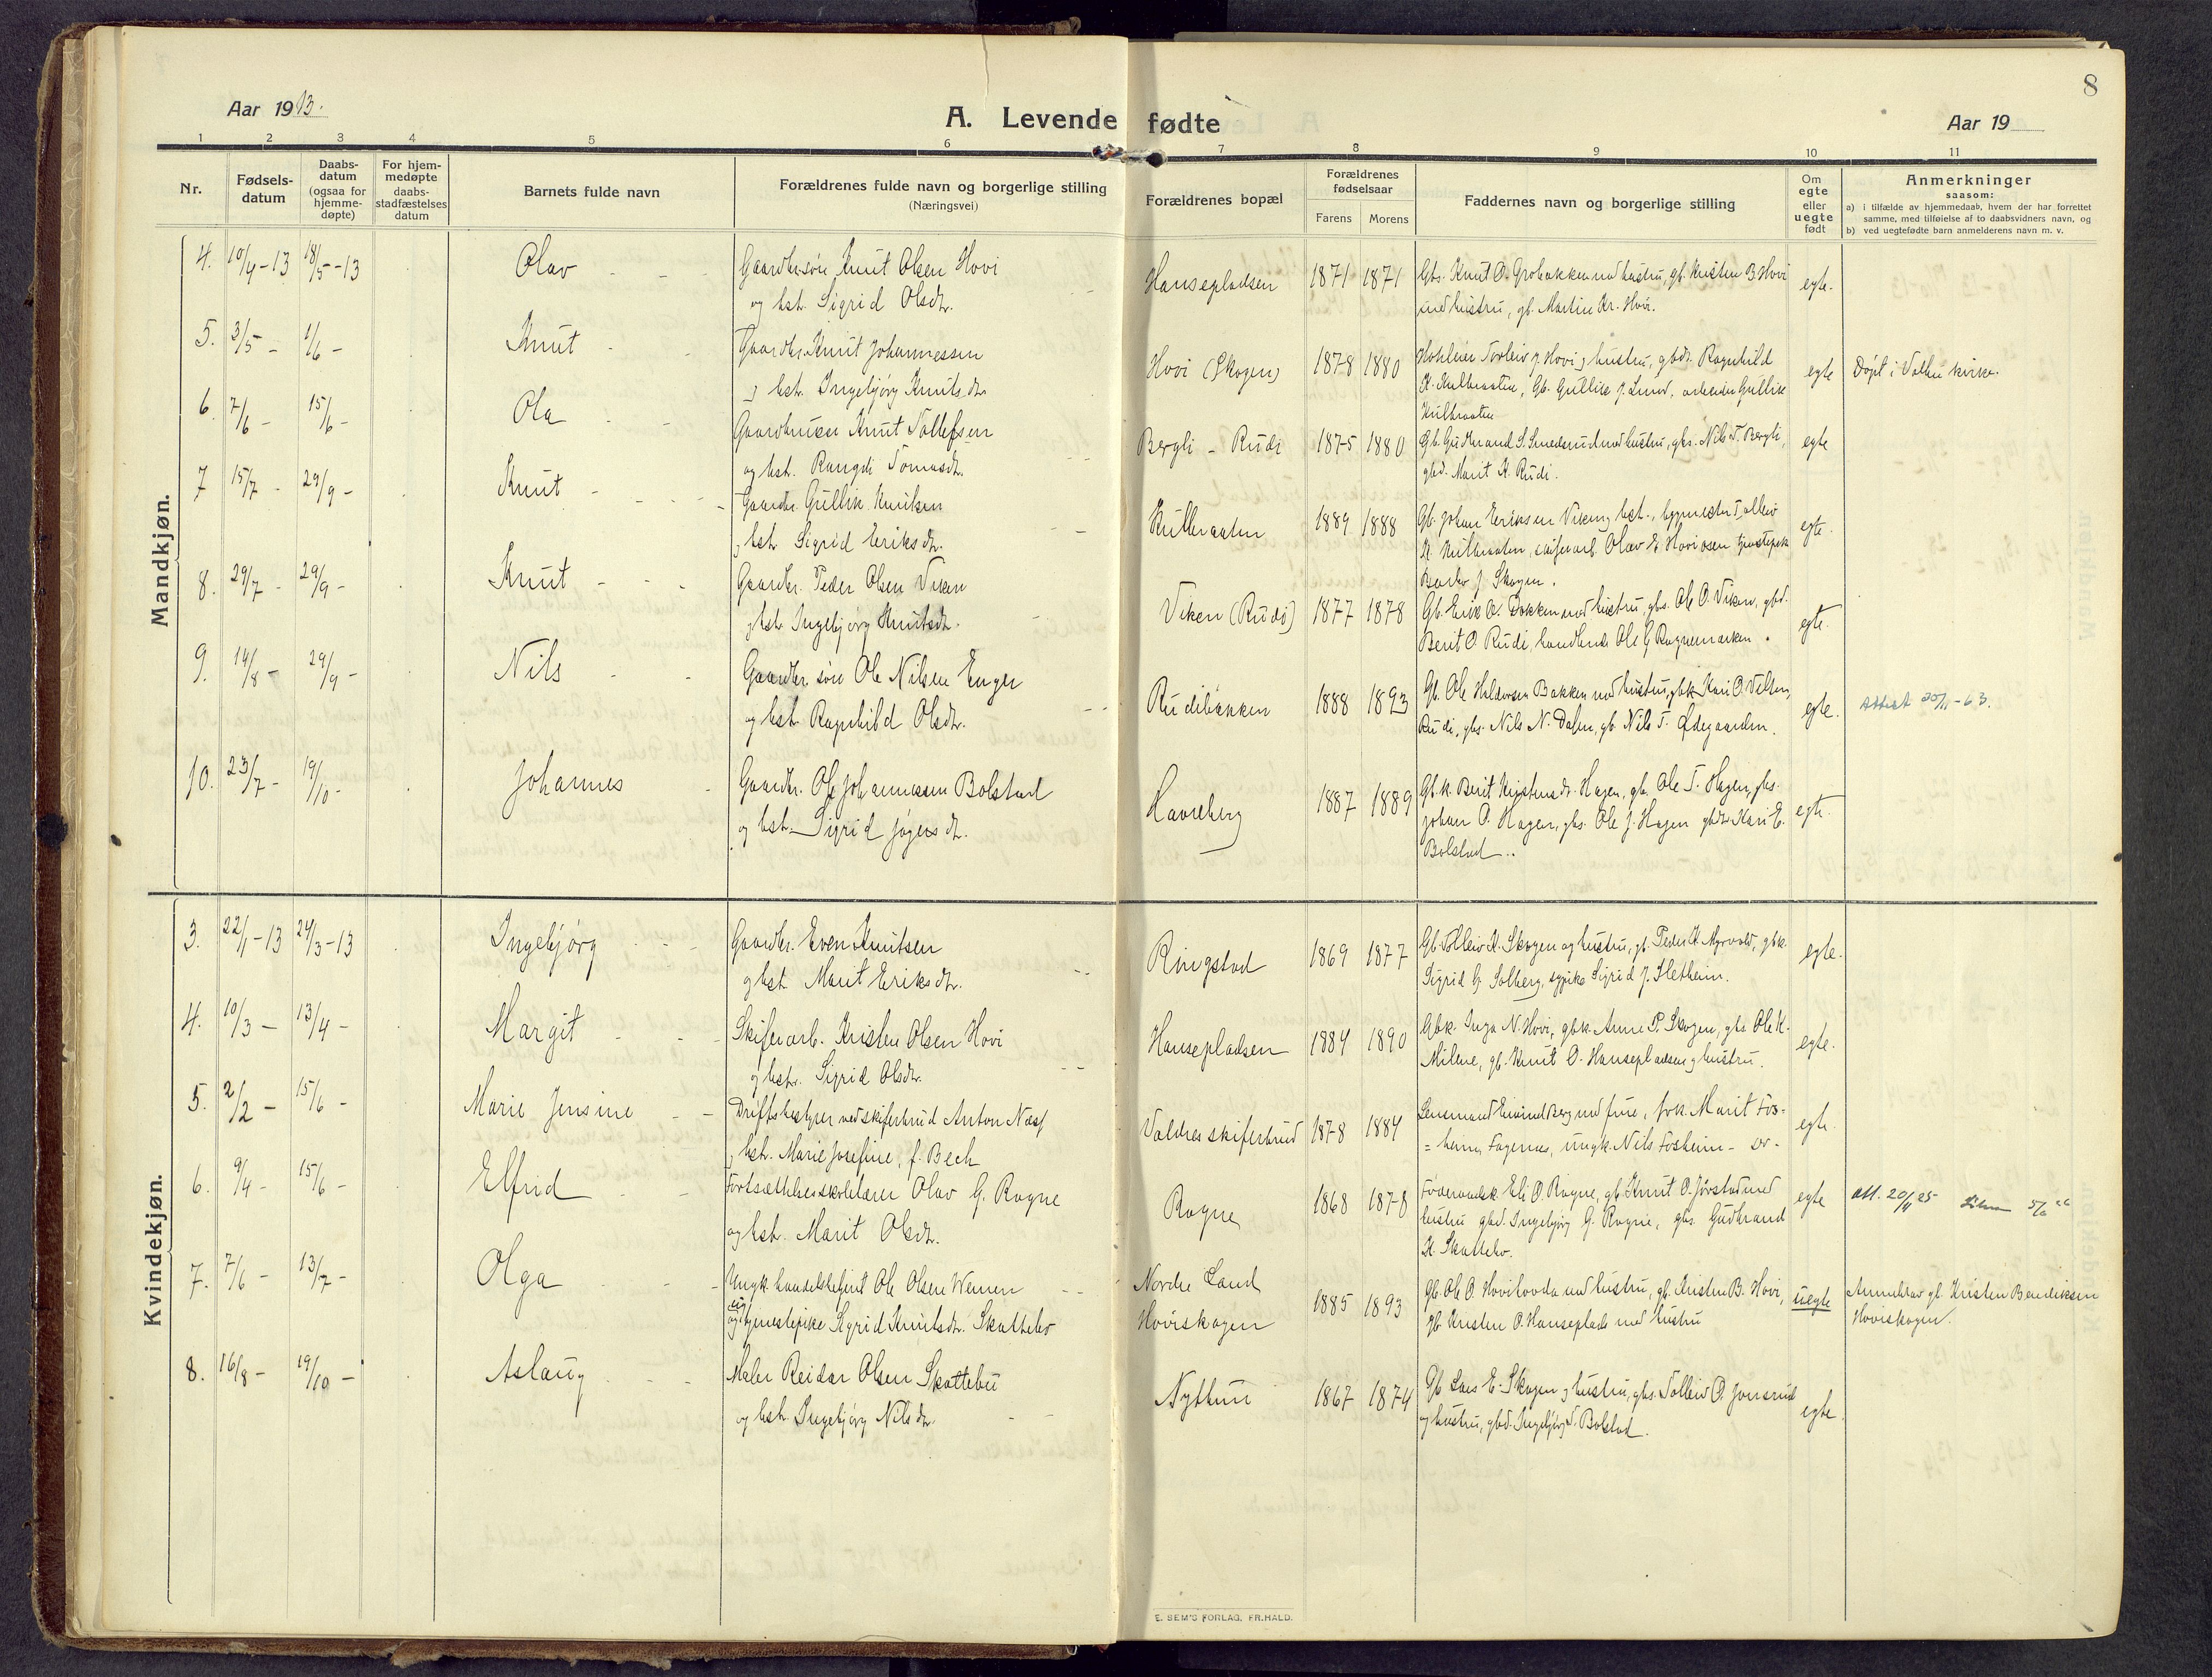 8
Aar 1913.
A. Levende fødte
Aar 19
1 2 3 4 5 6 7 8 9 10 11
Nr.
Fødsels-
datum
Daabs-
datum
(ogsaa for
hjemme-
døpte)
For hjem-
medøpte
daabs-
stadfæstelses
datum
Barnets fulde navn
Forældrenes fulde navn og borgerlige stilling
(Næringsvei)
Forældrenes bopæl
Forældrenes
fødselsaar
Farens Morens
Faddernes navn og borgerlige stilling
Om
egte
eller
uegte
født
Anmerkninger
saasom:
a) i tilfælde av hjemmedaab, hvem der har forrettet
samme, med tilføielse af to daabsvidners navn, og
b) ved uegtefødte barn anmelderens navn m. v.
Mandkjøn.
4. 10/4-13 18/5-13 Olav
Gaardbr.søn Knut Olsen Hovi
og hst. Sigrid Olsdtr.
Hansepladsen 1871 1871
Gbs. Knut O. Grobakken med hustru, gb. Kristen B. Hovi
med hustru, gb. Martin Kr. Hovi.
egte.
5. 3/5 - 1/6 - Knut
Gaardbr. Knut Johannessen
og hst. Ingebjørg Knutsdtr.
Hovi (Skogen) 1878 1880
Torleiv J. Hovi og hustru, gbdr. Ragnhild
K. Kulbraaten, Gb. Gullik J. Lund, arbeider Gullik
Kulbraaten
egte
Døpt i Volbu kirke.
6. 7/6 - 15/6 - Ola
Gaardbruker Knut Tollefsen
og hst. Rangdi Tomasdtr.
Bergli - Rudi 1875 1880
Gb. Gudbrand S. Smedsrud med hustru, gbs. Nils T. Bergli,
gbd. Marit K. Rudi.
egte
7 15/7 - 29/9 - Knut
Gaardbr. Gullik Knutsen
og hst. Sigrid Eriksdtr.
Kulbraaten 1889 1888
Gb. Johan Eriksen Viken og hst., bygmester Tolleiv
K. Kulbraaten, skiferarb. Olav E. Hoviosen tjenestepike
J. Skogen.
egte.
8. 29/7 - 29/9 - Knut
Gaardbr. Peder Olsen Viken
og hst. Ingebjørg Knutsdtr.
Viken (Rudi) 1877 1878
Gb. Erik O. Bakken med hustru, gbs. Ole O. Viken, gbd.
Berit O. Rudi, handlende Ole G. Rognemarken.
egte.
9. 14/8 - 29/9 - Nils
Gaardbr. søn Ole Nilsen Enger
og hst. Ragnhild Olsdtr.
Rudibakken 1888 1893
Gb. Ole Halvorsen Bakken med hustru, gbk. Kari O. Velten,
Rudi, gbs. Nils N. Dalen, gb. Nils T. Ødegaarden.
egte.
Attest 20/11-63.
10. 23/7 - 19/10 - Johannes
Gaardbr. Ole Johannessen Bolstad
og hst. Sigrid Jøgensdtr.
Havreberg 1887 1889
Gbk. Berit Kristensdr. Hagen, gb. Ole T. Hagen, gbs.
Johan O. Hagen, gbs. Ole J. Hagen gbdtr. Kari E.
Bolstad.
egte.
Kvindekjøn.
3. 22/1-13 24/3-13 Ingebjørg
Gaardbr. Even Knutsen
og hst. Marit Eriksdtr.
Ringstad 1869 1877
Gb. Tolleiv K. Skogen og hustru, gb. Peder K. Myrvold, gbk.
Sigrid G. Solberg, sypike Sigrid J. Sletheim.
egte.
4. 10/3 - 13/4 - Margit
Skiferarb. Kristen Olsen Hovi
og hst. Sigrid Olsdtr.
Hansepladsen 1884 1890
Gbk. Inga N. Hovi, gbk. Anne P. Skogen, gbs. Ole K.
Milene, gb. Knut O. Hansepladsen og hustru.
egte.
5. 2/2 - 15/6 - Marie Jensine
Driftsbestyrer ved skiferbrud Anton Næss
og hst. Marie Josefine, f. Bech
Valdres skiferbrud 1878 1884
Lensmand Eivind Berg med frue, frk. Marit Fos-
= heim, Fagernes, ungk. Nils Fosheim
egte.
6. 9/4 - 15/6 - Elfrid
Fortsættelsesskolelærer Olav G. Rogne
og hst. Marit Olsdtr.
Rogne 1868 1878
Føderaadsk. Eli O. Rogne, gb. Knut O. Jørstad med
hustru gbd. Ingebjørg G. Rogne, gbs. Gudbrand
K. Skattebo.
egte
att. 20/4 25
7. 7/6 - 13/7 - Olga
Ungk. handelsbetjent Ole Olsen
og tjenestepike Sigrid Knutsdtr. Skattebo
Nordre Land
Hoviskogen
1885 1893
Gb. Ole O. Hovilovda med hustru, gb. Kristen B. Hovi,
gb. Kristen O. Hanseplads med hustru
uegte
Anmeldt av gb. Kristen Bendiksen
Hoviskogen.
8. 16/8 - 19/10 - Aslaug
Maler Reidar Olsen Skattebu
og hst. Ingebjørg Nilsdtr.
Nythun 1867 1874
Gb. Lars E. Skogen og hustru, gbs. Tolleiv O. Jonsrud
og hustru, gbd. Ingebjørg T. Bolstad.
egte.
E. SEM'S FORLAG, FR.HALD.